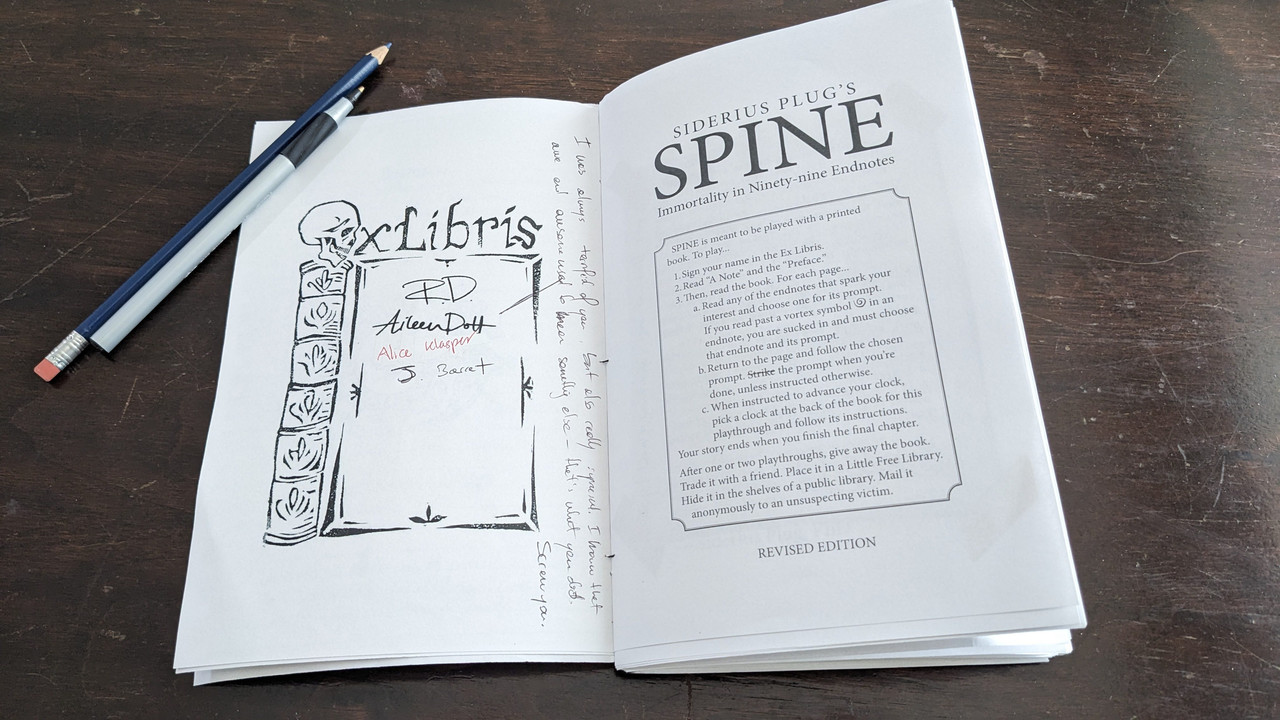 ExLibris
RD.
Aileen Dott
Alice Klasper
J. Barret
I was always terrified of you, but also really
I know that
else – that's what you
Screw you.
SIDERIUS PLUG'S
SPINE
Immortality in Ninety-nine Endnotes
SPINE is meant to be played with a printed
book. To play...
1. Sign your name in the Ex Libris.
2. Read “A Note” and the “Preface.”
3. Then, read the book. For each page...
a. Read any of the endnotes that spark your
interest and choose one for its prompt.
If you read past a vortex symbol in an
endnote, you are sucked in and must choose
that endnote and its prompt.
b. Return to the page and follow the chosen
prompt. Strike the prompt when you're
done, unless instructed otherwise.
c. When instructed to advance your clock,
pick a clock at the back of the book for this
playthrough and follow its instructions.
Your story ends when you finish the final chapter.
After one or two playthroughs, give away the book.
Trade it with a friend. Place it in a Little Free Library.
Hide it in the shelves of a public library. Mail it
anonymously to an unsuspecting victim.
REVISED EDITION